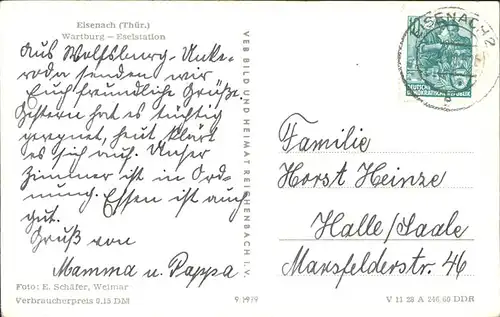 Eisenach (Thür.)
Wartburg – Eselstation
Aus Wolfsburg-Unke-
roda senden wir
Euch freundliche Grüße.
Gestern hat es tüchtig
geregnet, heut klärt
es sich auf. Unser
Zimmer ist in Ord-
nung. Essen ist auch
gut.
Gruß von
Mamma u. Pappa
Foto: E. Schäfer, Weimar
Verbraucherpreis 0.15 DM
9 1979
VEB BILD UND HEIMAT REICHENBACH I. V.
EISENACH 2
10
DEUTSCHE
DEMOKRATISCHE REPUBLIK
Familie
Horst Heinze
Halle/Saale
Mansfelderstr. 46
V 11 28 A 246/60 DDR